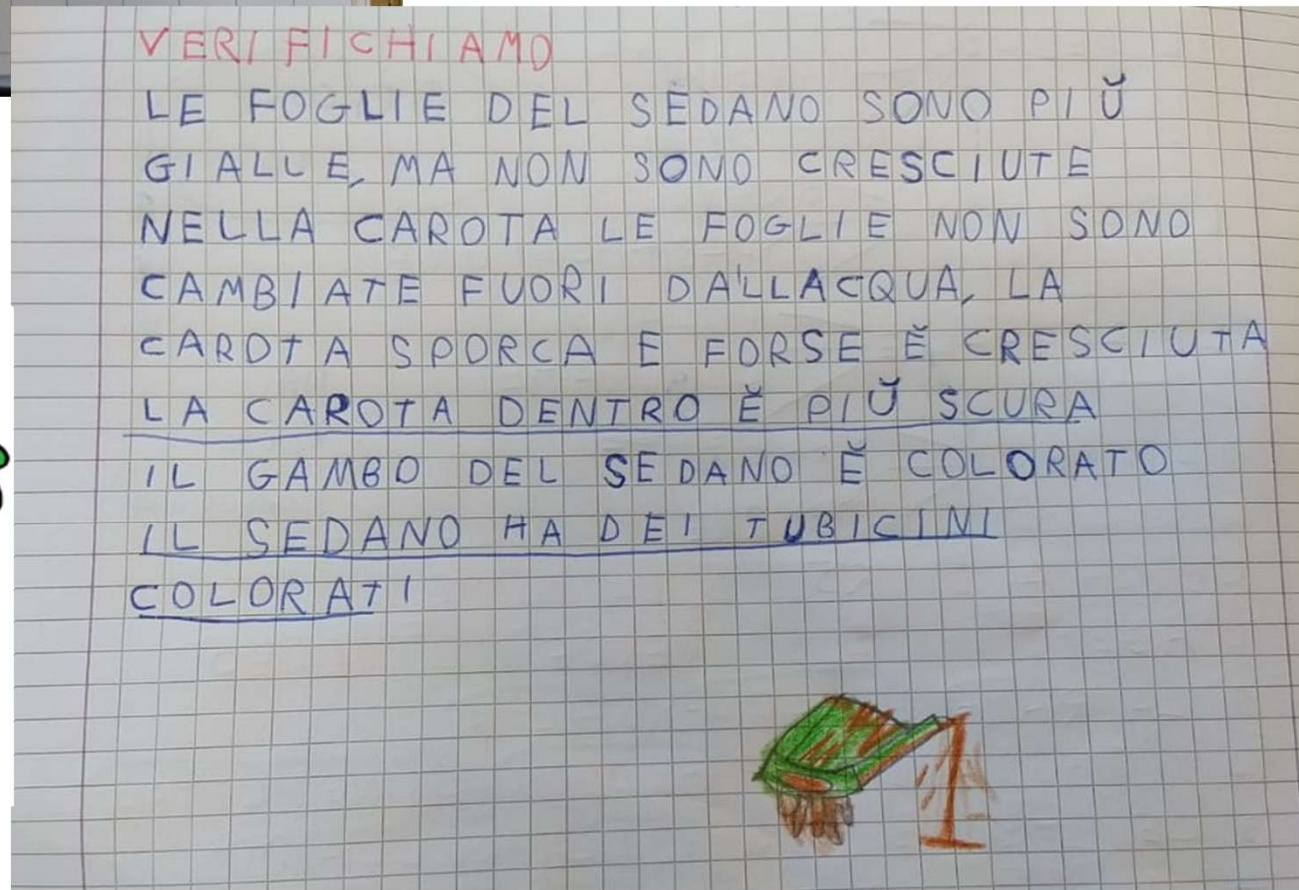 VERIFICHIAMO
LE FOGLIE DEL SEDANO SONO PIŬ
GIALLE, MA NON SONO CRESCIUTE
NELLA CAROTA LE FOGLIE NON SONO
CAMBIATE FUORI DA'LLACQUA, LA
CAROTA SPORCA E FORSE Ĕ CRESCIUTA
LA CAROTA DENTRO Ĕ PIŬ SCURA
IL GAMBO DEL SEDANO Ĕ COLORATO
IL SEDANO HA DEI TUBICINI
COLORATI